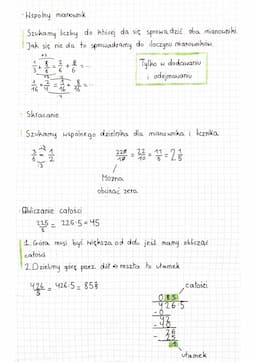 Wspólny mianownik
Szukamy liczby do której da się sprowadzić oba mianowniki
Jak się nie da to sprowadzamy do iloczynu mianowników
1/3 + 8/6 = 2/6 + 8/6 = ...
Tylko w dodawaniu
i odejmowaniu
Skracanie
Szukamy wspólnego dzielnika dla mianownika i licznika
3/6 = 1/2
220/10 = 22/10 = 11/5 = 2 1/5
Można
obcinać zera
Obliczanie całości
225/5 = 225:5=45
1. Góra musi być większa od dołu jeśli mamy obliczać
całości
2. Dzielimy górę przez dół a reszta to ułamek
426/5 = 426:5 = 85
całości
085
426:5
-0
42
-40
26
-25
1
ułamek